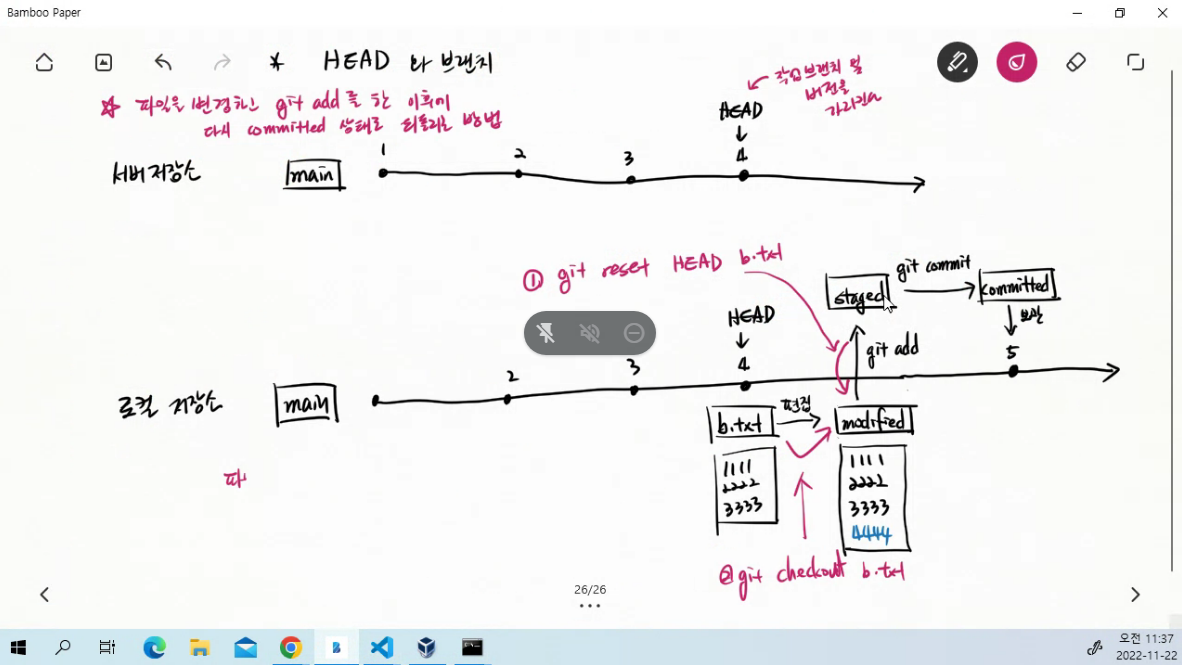 Bamboo Paper
* HEAD 와 브랜치
* 파일을 변경하고 git add 를 한 이후에
다시 committed 상태로 되돌리는 방법
작업브랜치 및
버전을
가리킨다
HEAD
서버저장소
main
1
2
3
4
① git reset HEAD b.txt
staged
git commit
committed
보관
HEAD
git add
로컬 저장소
main
2
3
4
5
b.txt
편집
modified
1111
2222
3333
1111
2222
3333
4444
파
② git checkout b.txt
26/26
오전 11:37
2022-11-22